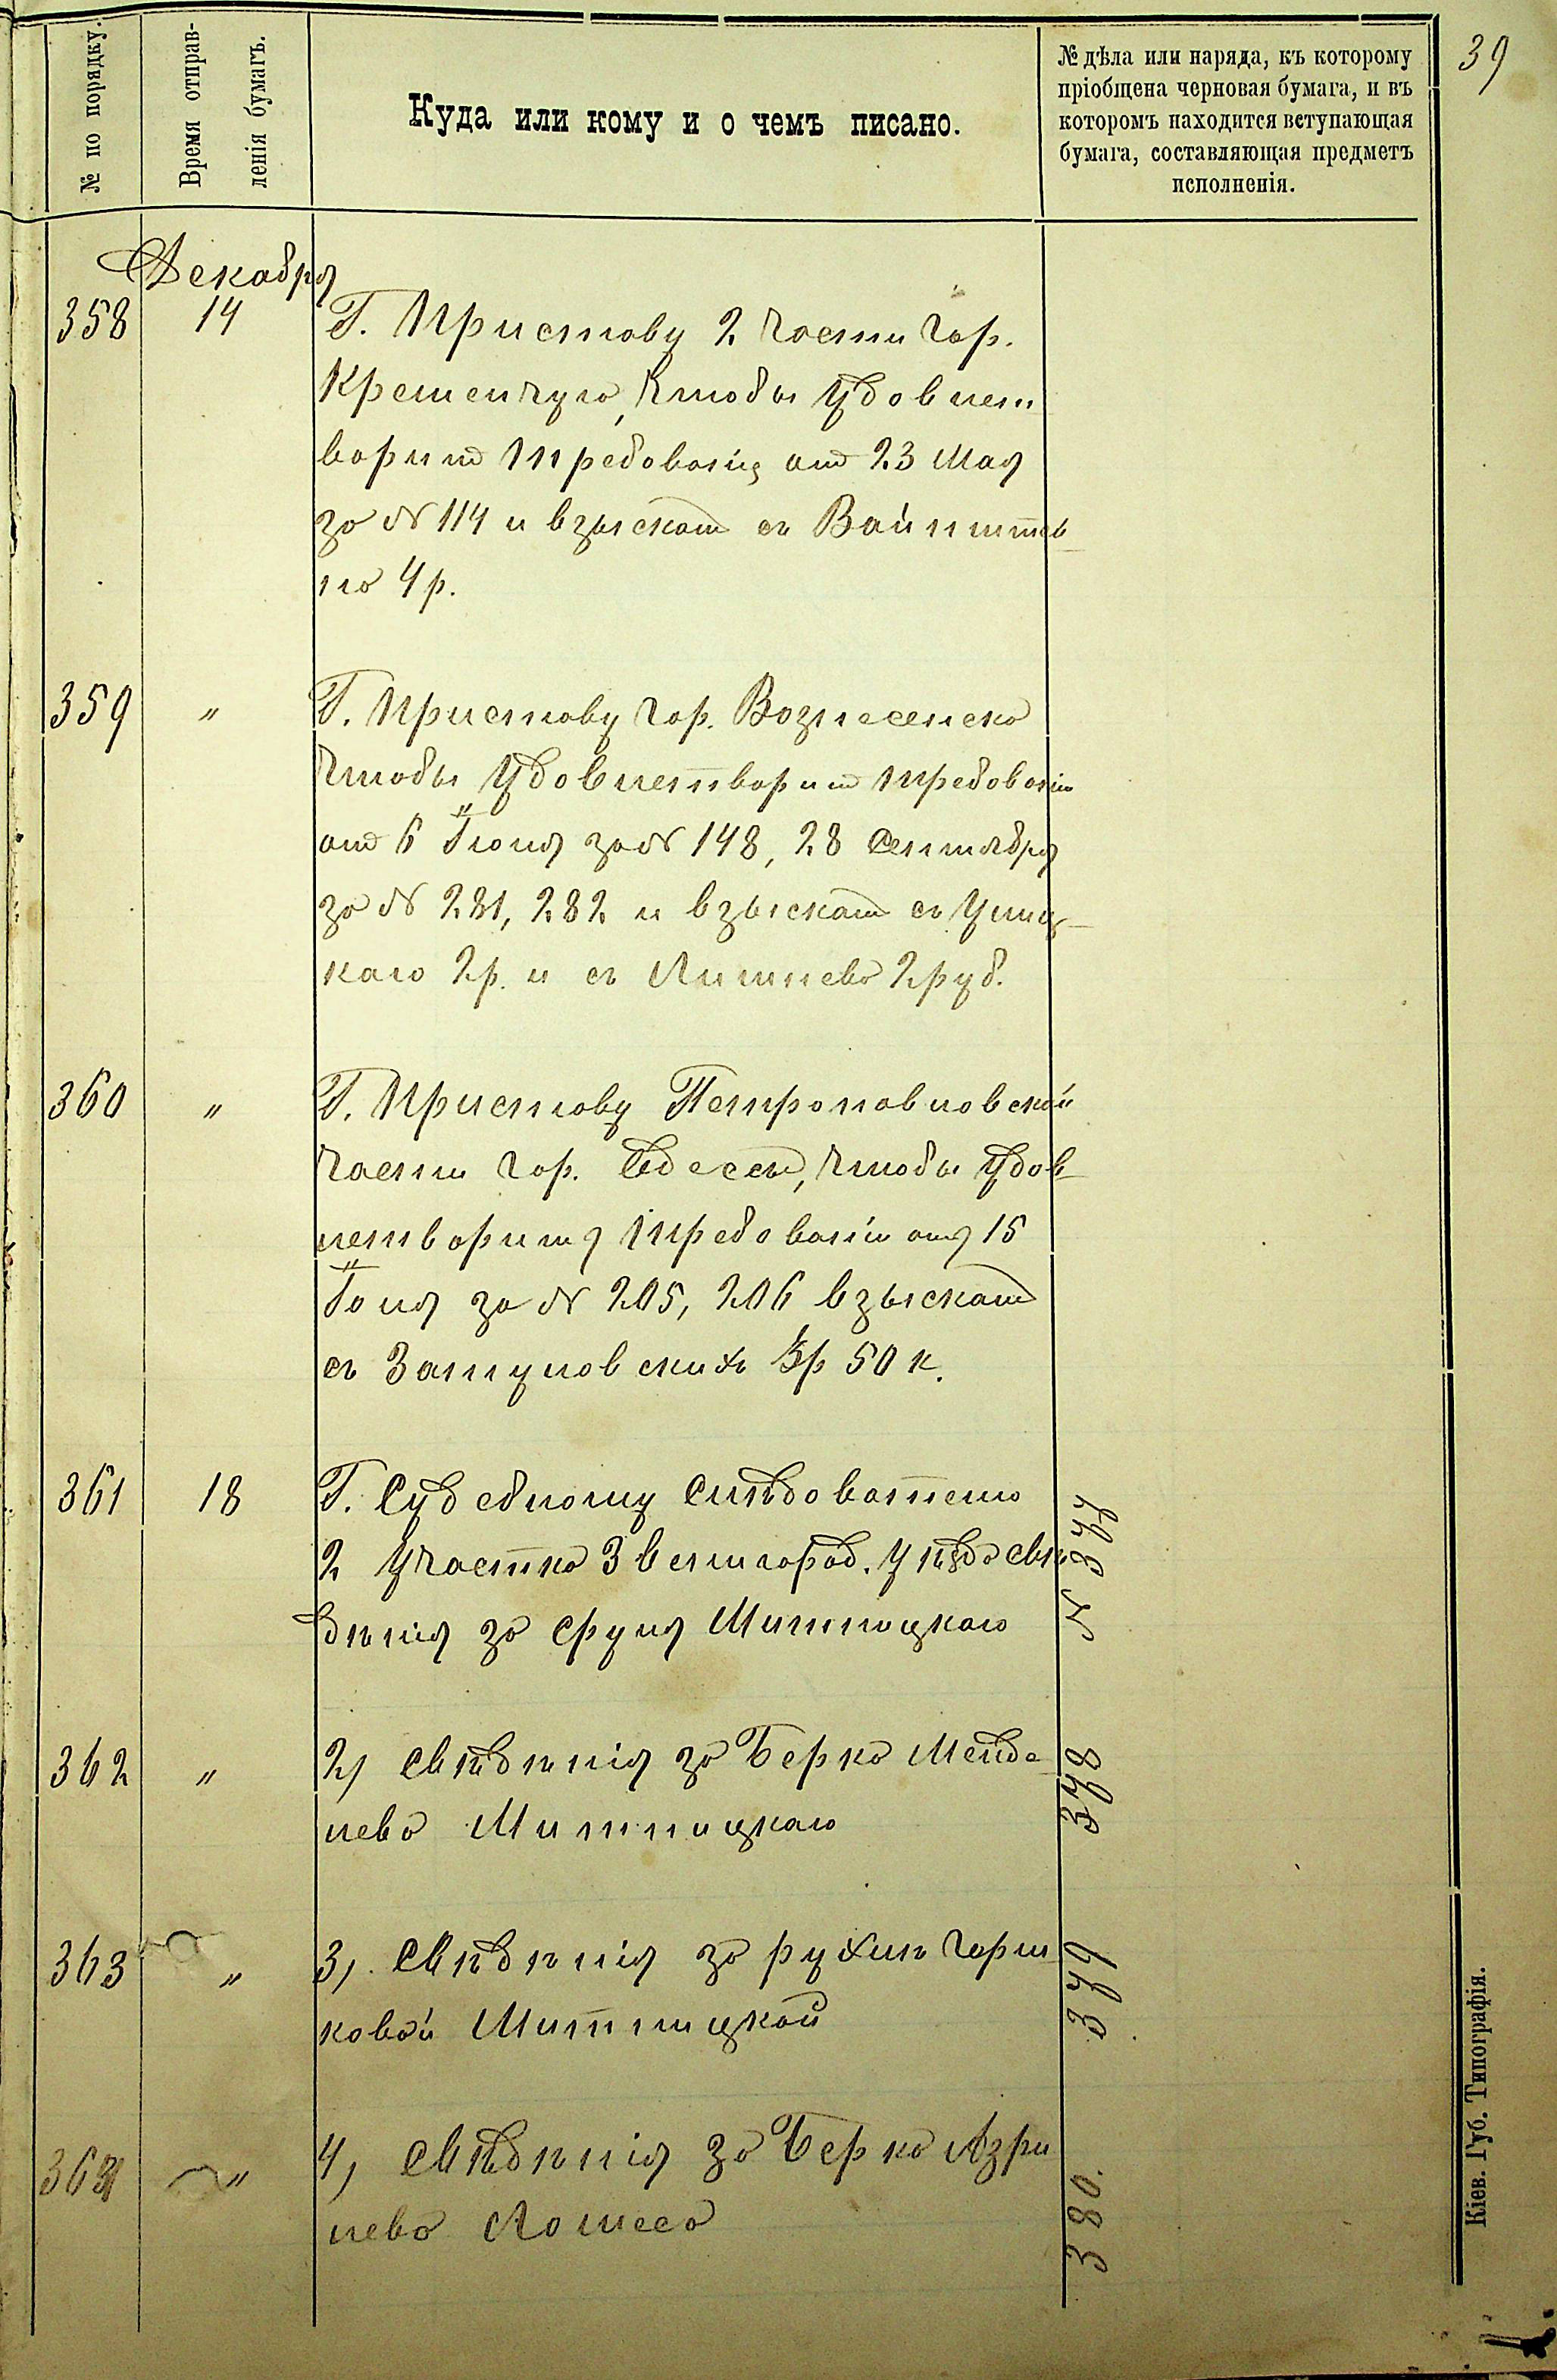 39
№ по порядку.
Время отправ-
ленія бумагъ.
Куда или кому и о чемъ писано.
№ дѣла или наряда, къ которому
пріобщена черновая бумага, и въ
которомъ находится вступающая
бумага, составляющая предметъ
исполненія.
Декабря
358 14 Г. Приставу 2 части гор.
Кременчуга, чтобы удовлет
ворит требованія от 23 Мая
за № 114 и взыскат съ Вайнште
на 4 р.
359 " Г. Приставу гор. Вознесенска
чтобы удовлетворит требованія
от 6 Іюня за № 148, 28 Сентября
за № 281, 282 и взыскат съ
каго 2 р. и съ Литнева 2 руб.
360 " Г. Приставу Петропавловской
части гор. Одессы, чтобы удов
летворитъ требованія отъ 15
Іюля за № 205, 206 взыскат
съ Затуловскихъ р 50 к.
361 18 Г. Судебному Слѣдователю
2 участка Звенигород. уѣзда свѣ
дѣнія за Сруля Митницкаго № 377
362 " 2) Свѣдѣнія за Берка Менде
лева Митницкаго 378
363 " 3) Свѣдѣнія за рухлѣ Герш
ковой Митницкой 379
364 " 4) Свѣдѣнія за Берка Азри
лева 380.
Кіев. Губ. Типографія.